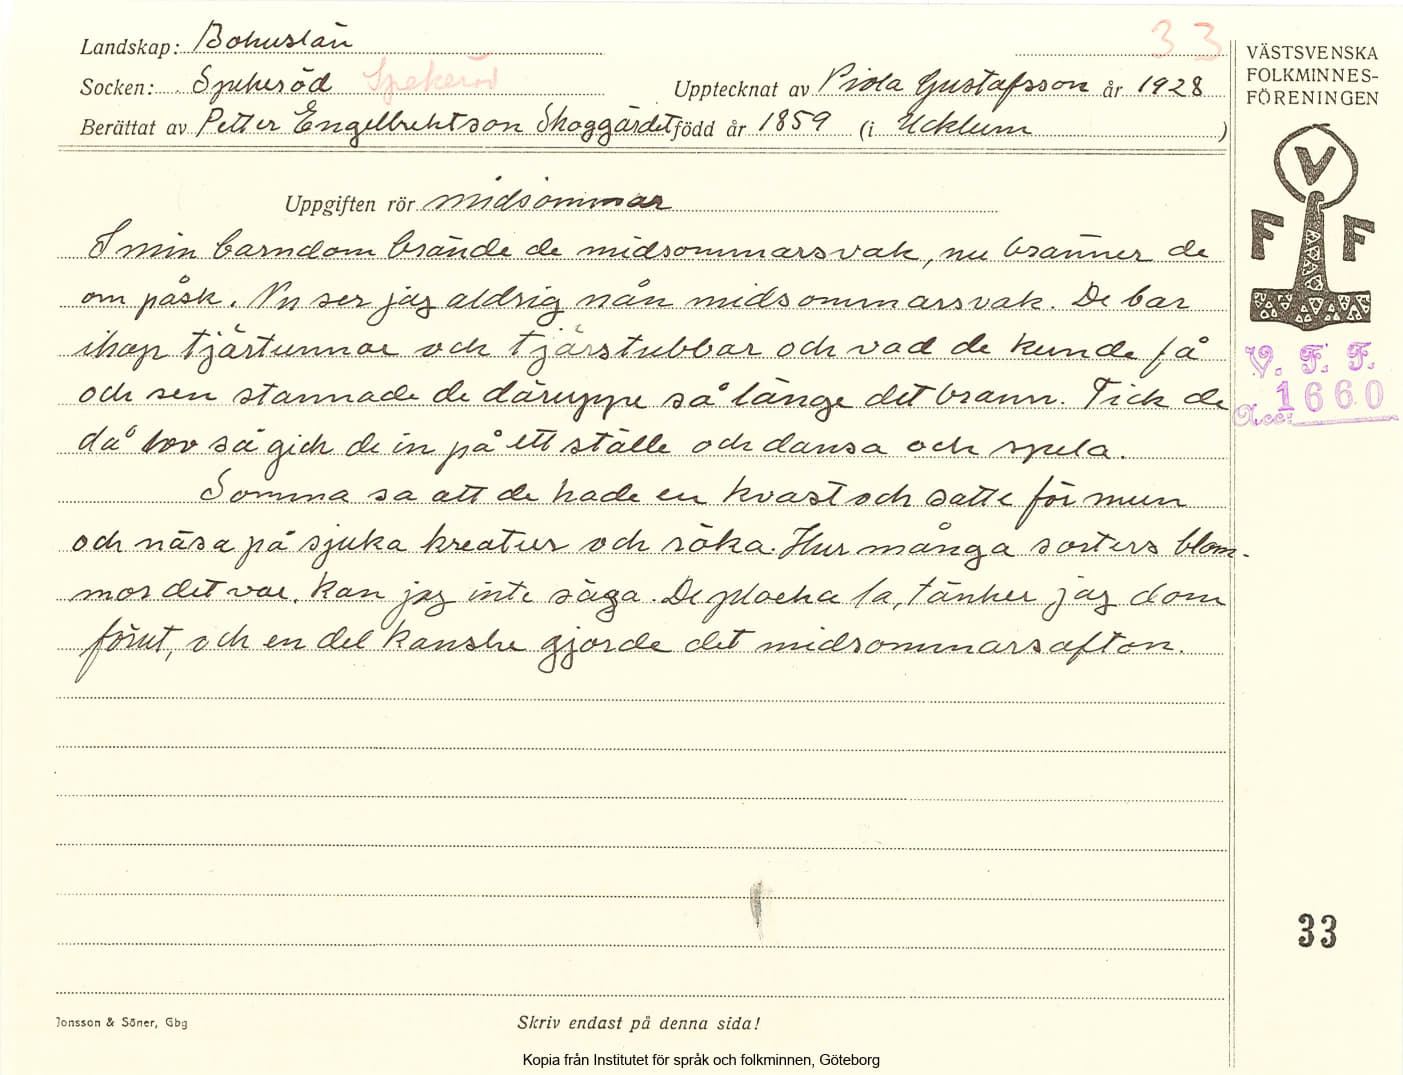 Landskap: Bohuslän
33
Socken: Spekeröd Spekeröd
Upptecknat av Viola Gustafsson år 1928
Berättat av Petter Engelbrektson Skoggärdet född år 1859 (i Ucklum )
VÄSTSVENSKA
FOLKMINNES-
FÖRENINGEN
V
F F
V. F. F.
1660
Acc:
Uppgiften rör midsommar
I min barndom brände de midsommarsvak, nu bränner de
om påsk. Nu ser jag aldrig nån midsommarsvak. De bar
ihop tjärtunnor och tjärstubbar och vad de kunde få
och sen stannade de däruppe så länge det brann. Fick de
då lov så gick de in på ett ställe och dansa och spela.
Somma sa att de hade en kvast och satte för mun
och näsa på sjuka kreatur och röka. Hur många sorters blom-
mor det var, kan jag inte säga. De plocka la, tänker jag dom
förut, och en del kanske gjorde det midsommarsafton.
33
Jonsson & Söner, Gbg
Skriv endast på denna sida!
Kopia från Institutet för språk och folkminnen, Göteborg